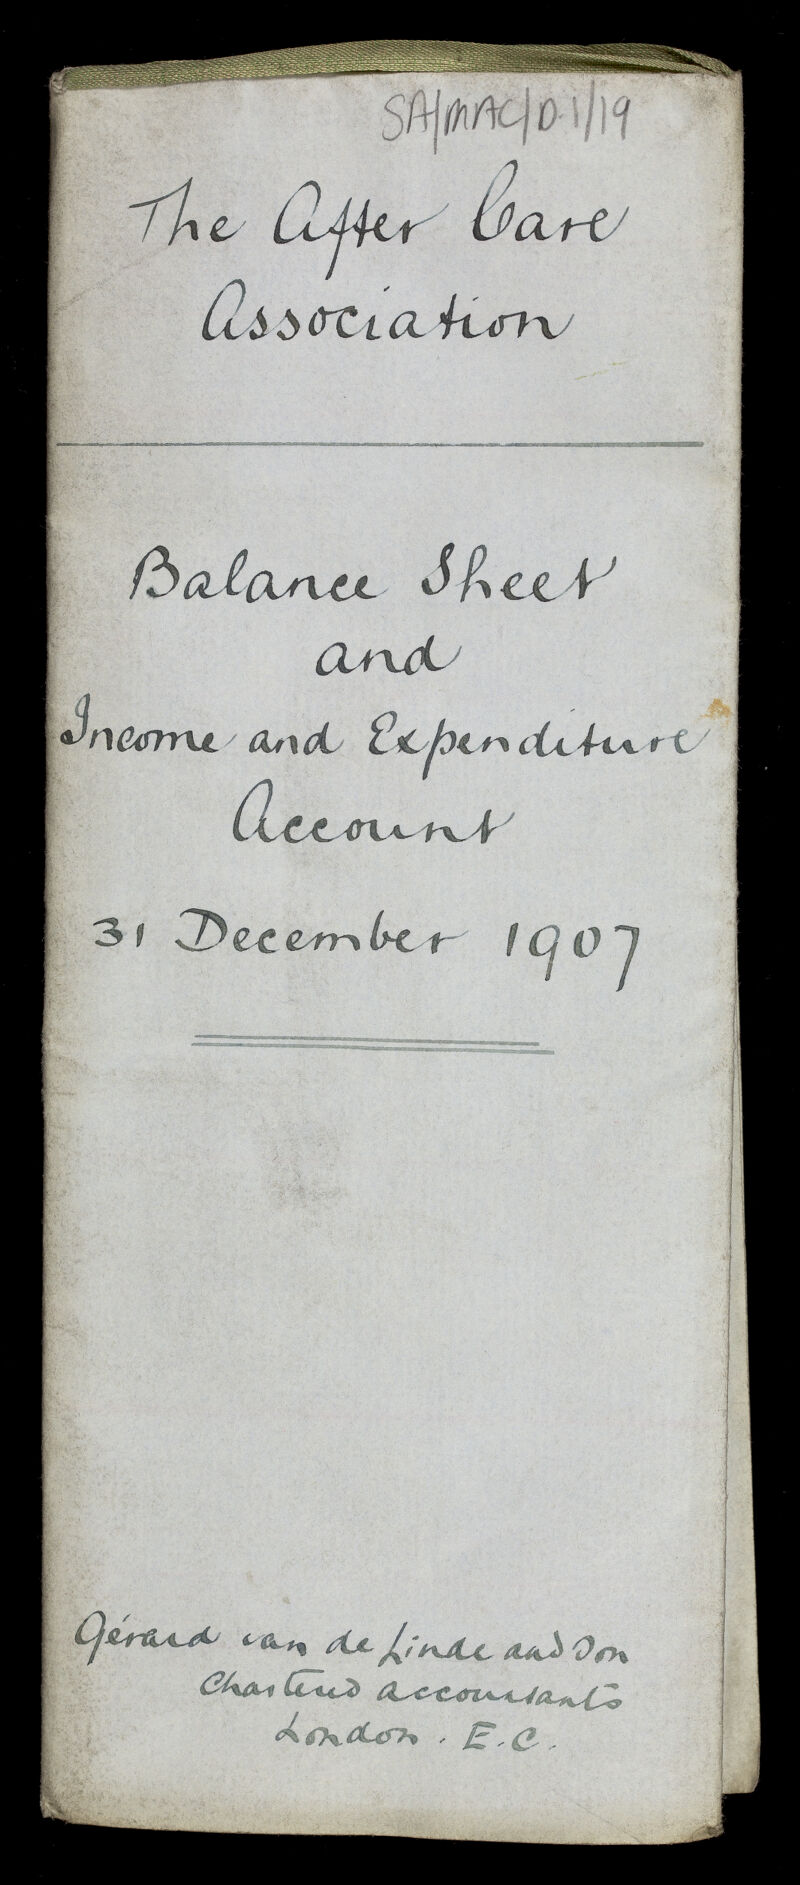 SA/MAC/D.1/19
The After Care
Association
Balance Sheet
and
Income and Expenditure
Account
31 December 1907
Gérard van de Linde and Son
Chartered Accountants
London. E.C.